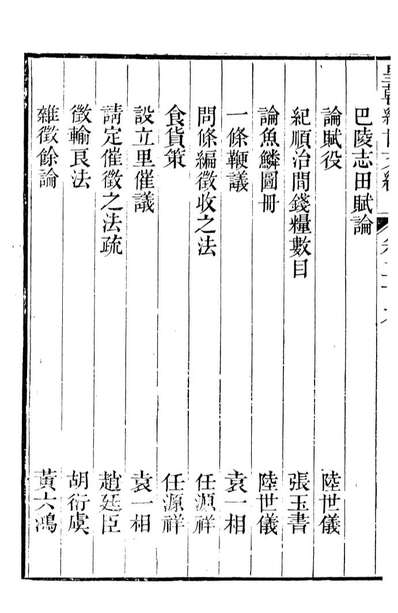 皇朝經世文編 卷二十九
巴陵志田賦論
論賦役 陸世儀
紀順治間錢糧數目 張玉書
論魚鱗圖冊 陸世儀
一條鞭議 袁一相
問條編徵收之法 任源祥
食貨策 任源祥
設立里催議 袁一相
請定催徵之法疏 趙廷臣
徵輸良法 胡衍虞
雜徵餘論 黃六鴻